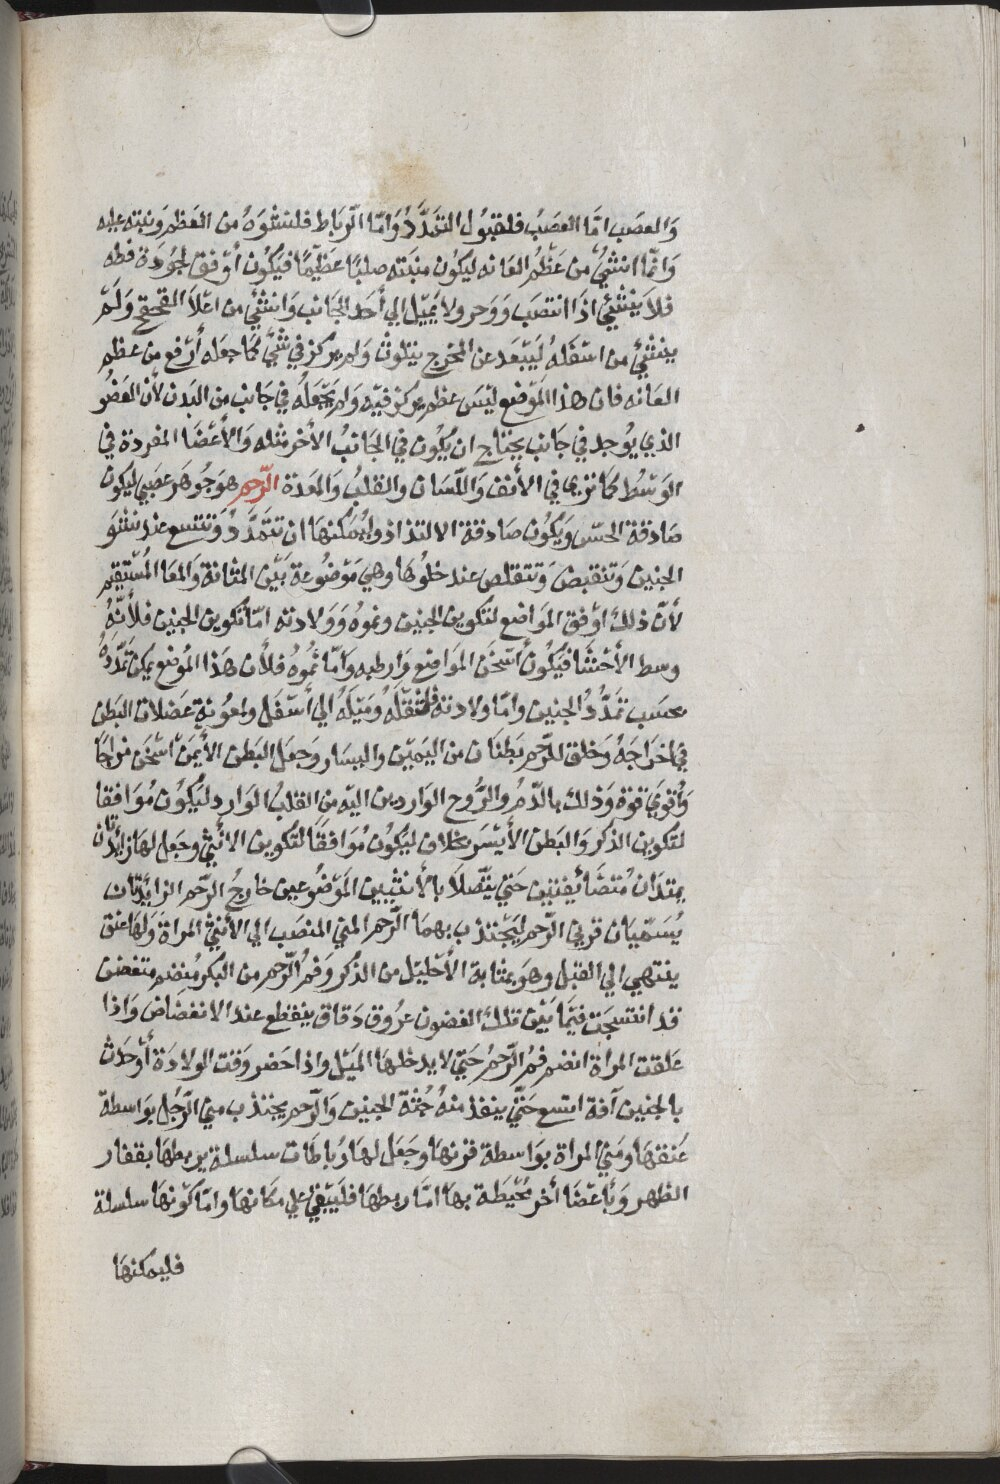 وَالعصَب امَّا العصَبُ فلقبُول التمَدَّدُ وَامّا الّربَاط فلنشُوَهُ من العَظمْ وَنبته عليه
وَانمّا انشيُّ من عَظمُ العَانه ليكوُن منبَته صلبًا عَظيمًا فيَكوُن أوْفق لجُودَة فطه
فلاَ ينْثنيُ اذَا انتصَب وَوَحر ولا يَميْل الي أحَد الجَانب وَانشيُ من اعْلاَ القحقح وَلَمْ
ينشيُ من اسْفَلهُ ليَبْعَد عن المخرج يتلوثْ وَلم يركز في شيَّ كمَا جعَله أرْفع من عظم
العَانه فان هذا الموْضع ليْسَ عظم يركز فيْه وَلم يَجْعَلهُ في جَانب من البَدن لأن العُضوُ
الذي يوُجد في جَانب يحتاج ان يكوُن في الجَانبُ الأخر مثله وَالأعْضَا المفردة في
الوَسْط كمَا نري في الأنف وَاللّسَان والقلبُ وَالمعَدة الرّحم هوَ جُوهَر عصَبي ليكوُن
صَادقة الحسّ وَيكوُن صَادقة الالتذاذ وليُمكنهَا ان تتمَدَّدُ وَتتسع عند نشوَ
الجنين وَتنقبضَ وَتتقلص عند خلوُهَا وهي مَوْضوُعة بَيْن المثانة وَالمعَا المُسْتقيم
لأنّ ذلكَ اوْفق المَواضع لتكوين الجنين ونموهُ وَوَلادته امّا تكوين الجنين فلأنّهُ
وسط الأحْشا فيَكوُن أسْخنَ المَواضع وَارطبه وَامّا نموُهُ فلأن هذَا الموُضع يمكن تمَدّدَهُ
بحسَب تمَدُّدُ الجنين وامّا ولادته فلثقله وُمَيْلَهُ الي أسْفَل ولمعُونة عَضلات البَطن
في اخراجَهُ وَخلق للرّحم بَطنَان من اليَميْن واليسَار وَجعَل البَطن الأيمَن اسْخنَ مزاجًا
وَأقويَ قوة وَذلك بالدّمُ والرُّوح الوَاردين اليْه من القلبُ الوَارد ليُكوُن مُوَافقا
لتكوين الذكرَ والبَطن الأيْسَر بخلاف ليكوُن مُوَافقًا لتكوين الانثيْ وجَعل لهَا زائدَتان
يمتدان مُتضَائفتين حَتيْ يتّصلاَ بالأنثيْين المَوْضوُعين خارجُ الرّحم الزائدَتان
يُسَمّيَان قرنيْ الرّحم ليَجْتذب بهمَا الرّحم المني المنصَب الي الأنثيْ المراة وَلهَا عُنق
ينتهي الي القبْل وهوَ بمثابة الأحْليْل من الذكر وَفمُ الرّحم من البكر مُنضم متغضن
قد انتسجَت فيْمَا بَيْن تلكْ الغضون عرُوق دَقاق ينقطع عند الانفضَاض وَاذا
عَلقت المراة انضم فمُ الرّحمُ حَتيْ لا يدخلهَا الميْل واذا حَضر وَقت الولادَة أوْ حَدث
بالجنين آفة اتسع حَتيْ ينفذ منهُ جُثة الجنين وَالرّحم يجتذب مني الرّجُل بوَاسطة
عُنقهَا ومَنيْ المراة بوَاسطة قرنهَا وجَعَل لهَا رُباطَات سلسلة يربطهَا بفقار
الظهر وَبأعْضَا أخر مُحيْطة بهَا امّا ربطهَا فليَبْقيْ علي مكانهَا وامّا كوْنهَا سلسلة
فليمكنهَا